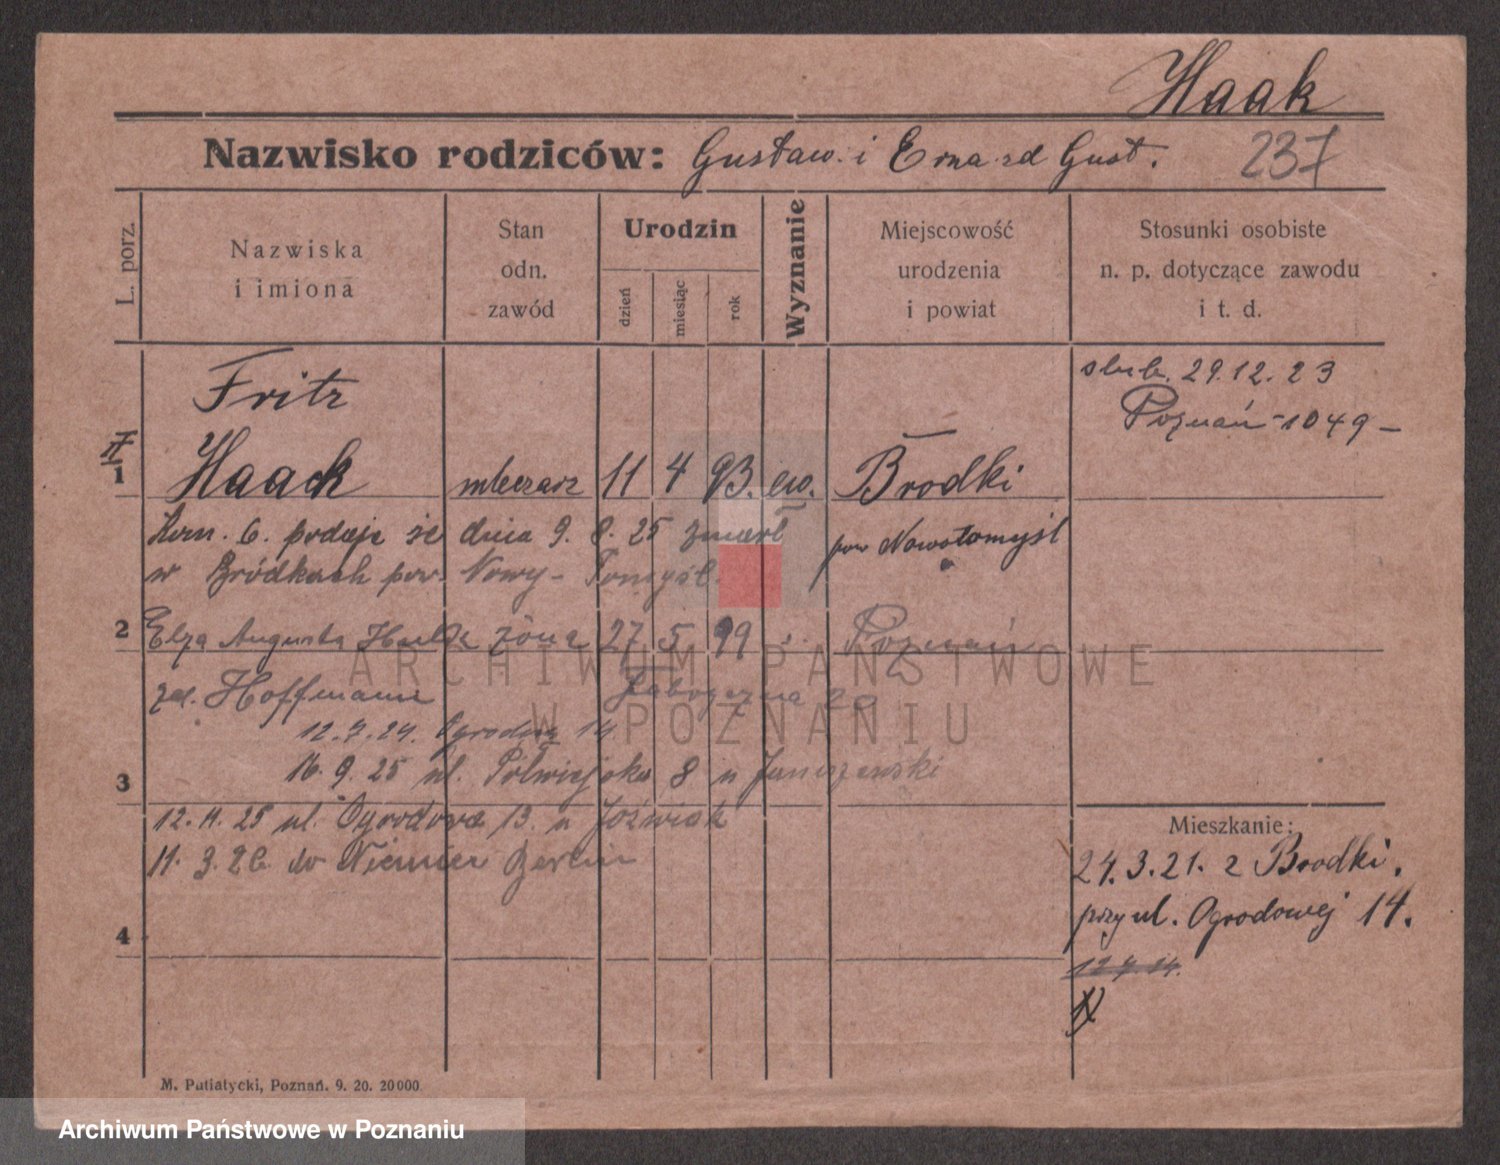 Haak
Nazwisko rodziców: Gustaw i Erna zd Gust. 237
L. porz.
Nazwiska i imiona
Stan odn. zawód
Urodzin
dzień
miesiąc
rok
Wyznanie
Miejscowość urodzenia i powiat
Stosunki osobiste n. p. dotyczące zawodu i t. d.
Fritz
ślub. 29.12.23
Poznań - 1049 -
1 Haack mleczarz 11 4 93. ew. Brodki
Kom. 6. podaje że dnia 9. 8. 25 zmarł pow Nowotomyśl
w Bródkach pow. Nowy-Tomyśl.
2 Elza Augusta Haack żona 27 5 99 Poznań
zd. Hoffmann
12.7.24. Ogrodowa 14
16. 9. 25 ul. Półwiejska 8 u Janiszewski
3
12. 11. 25 ul. Ogrodowa 13. u Jóźwiak
11. 3. 26. do Niemiec Berlin
4
Mieszkanie:
24.3.21. z Brodki.
przy ul. Ogrodowej 14.
12.7.24.
M. Putiatycki, Poznań. 9. 20. 20000.
ARCHIWUM PAŃSTWOWE
W POZNANIU
Archiwum Państwowe w Poznaniu